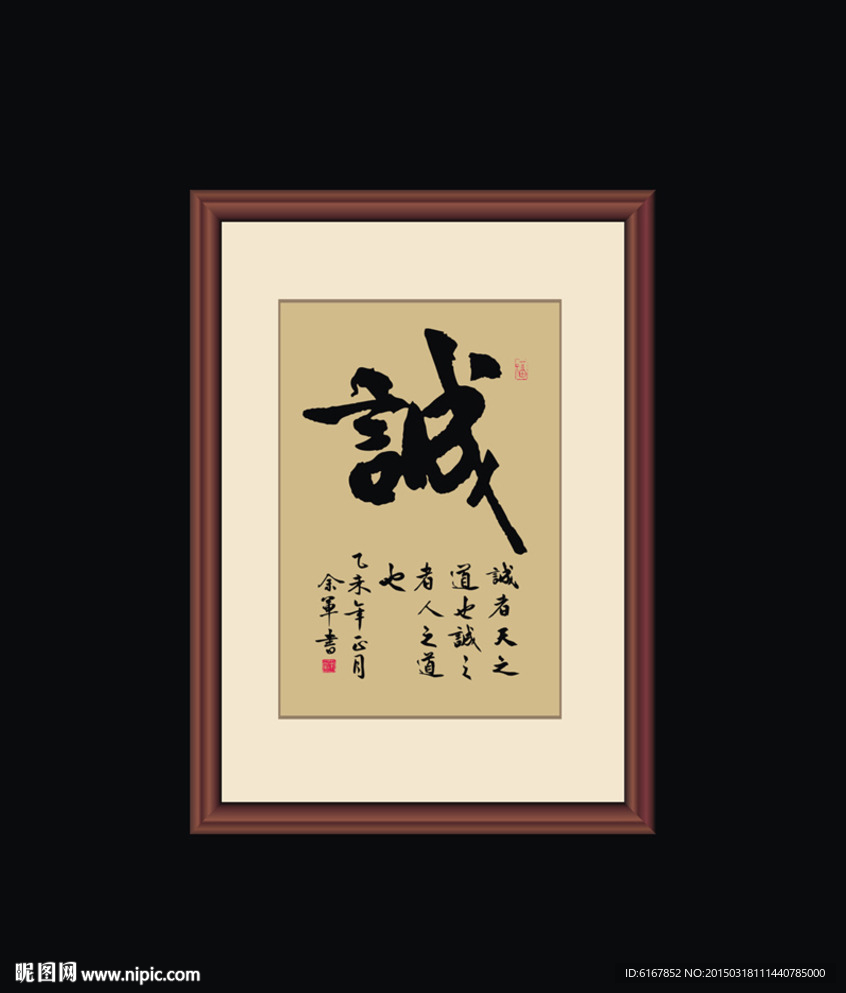 誠
誠者天之
道也誠之
者人之道
也
乙未年正月
余軍書
昵图网 www.nipic.com
ID:6167852 NO:20150318111440785000